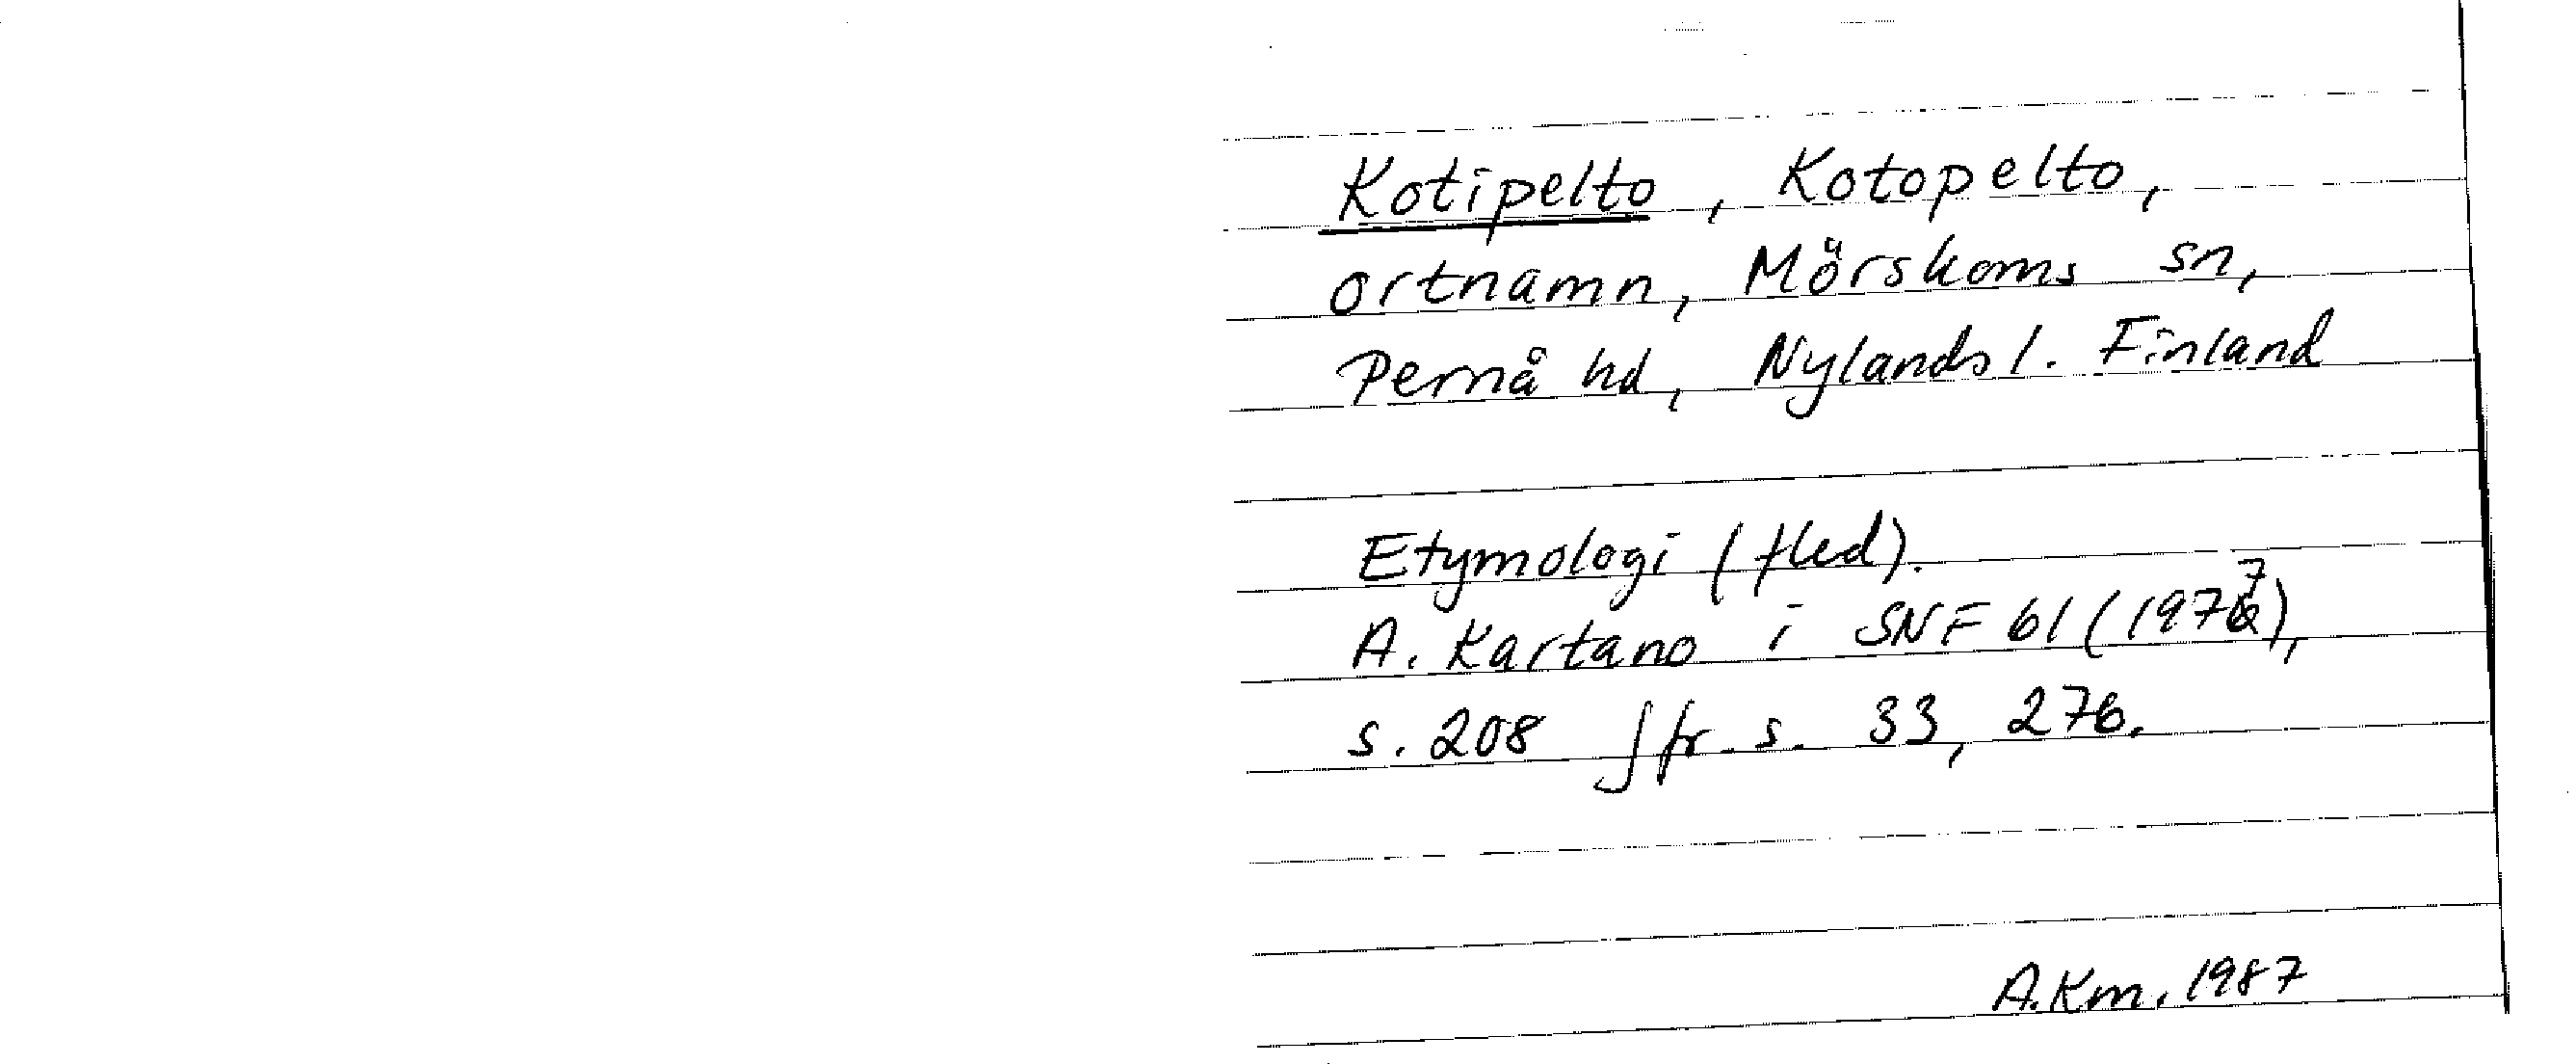 Kotipelto, Kotopelto,
ortnamn, Mörskoms sn,
Pernå hd, Nylands l. Finland
Etymologi (fled).
A. Kartano i SNF 61 (1977),
s. 208 Jfr s. 33, 276.
A.Km. 1987